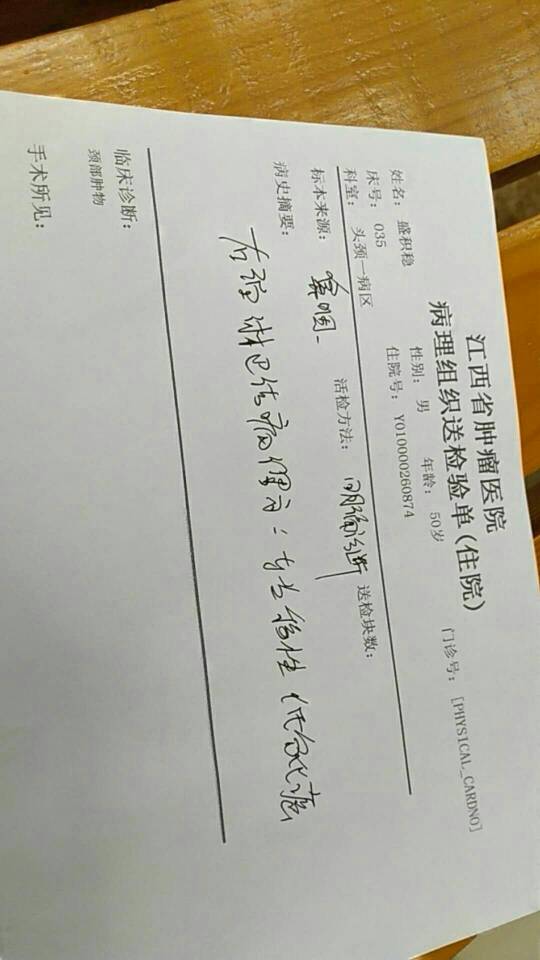 江西省肿瘤医院
病理组织送检验单(住院)
门诊号: [PHYSICAL_CARDNO]
姓名: 盛积稳 性别: 男 年龄: 50岁
床号: 035 住院号: Y010000260874
科室: 头颈一病区
标本来源: 鼻咽 活检方法: 明确诊断 送检块数:
病史摘要:
右颈淋巴结病理示: 转移性低分化癌
临床诊断:
颈部肿物
手术所见: